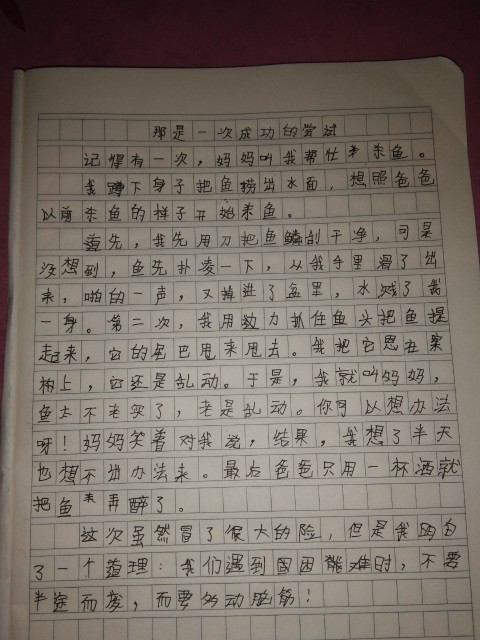 那是一次成功的尝试
记惺有一次，妈妈叫我帮忙来杀鱼。
我蹲下身子把鱼捞出水面，想照爸爸
以前杀鱼的样子开始杀鱼。
首先，我先用刀把鱼鳞刮干净，可是
没想到，鱼先扑凌一下，从我手里滑了出
来，啪的一声，又掉进了盆里，水溅了我
一身。第二次，我用力抓住鱼头把鱼提
起来，它的尾巴甩来甩去。我把它思在案
板上，它还是乱动。于是，我就叫妈妈，
鱼太不老实了，老是乱动。你可以想办法
呀！妈妈笑着对我说，结果，我想了半天
也想不出办法来。最后爸爸只用一杯酒就
把鱼来弄醉了。
这次虽然冒了很大的险，但是我明白
了一个道理：我们遇到困难时，不要
半途而废，而要多动脑筋！